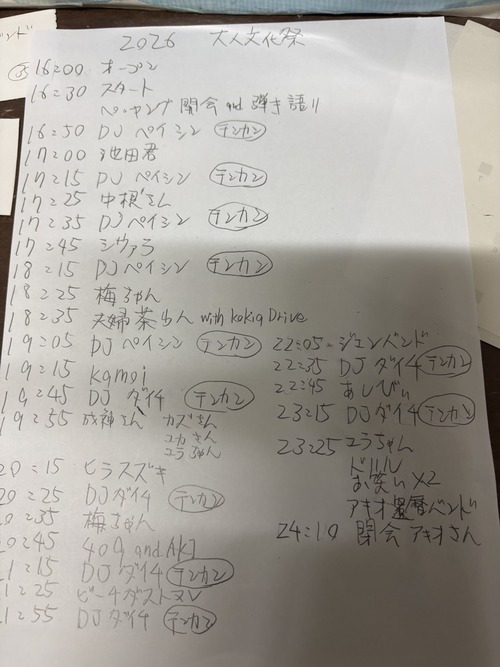 2026 大人文化祭
16:00 オープン
16:30 スタート
ペーヤング 開会 and 弾き語り
16:50 DJ ペイシン テンカン
17:00 池田君
17:15 DJ ペイシン テンカン
17:25 中根さん
17:35 DJ ペイシン テンカン
17:45 シヴァラ
18:15 DJ ペイシン テンカン
18:25 梅ちゃん
18:35 夫婦茶らん with kokia Drive
19:05 DJ ペイシン テンカン
19:15 kamoi
19:45 DJ ダイチ テンカン
19:55 成神さん カズさん
ユカさん
ユラちゃん
20:15 ヒラスズキ
20:25 DJダイチ テンカン
20:35 梅ちゃん
20:45 409 and AKI
21:15 DJダイチ テンカン
21:25 ビーチダストヌV
21:55 DJ ダイチ テンカン
22:05 ジェンバンド
22:35 DJ ダイチ テンカン
22:45 あしびぃ
23:15 DJ ダイチ テンカン
23:25 ユラちゃん
ドリル
お笑い×2
アキオ還暦バンド
24:10 閉会 アキオさん